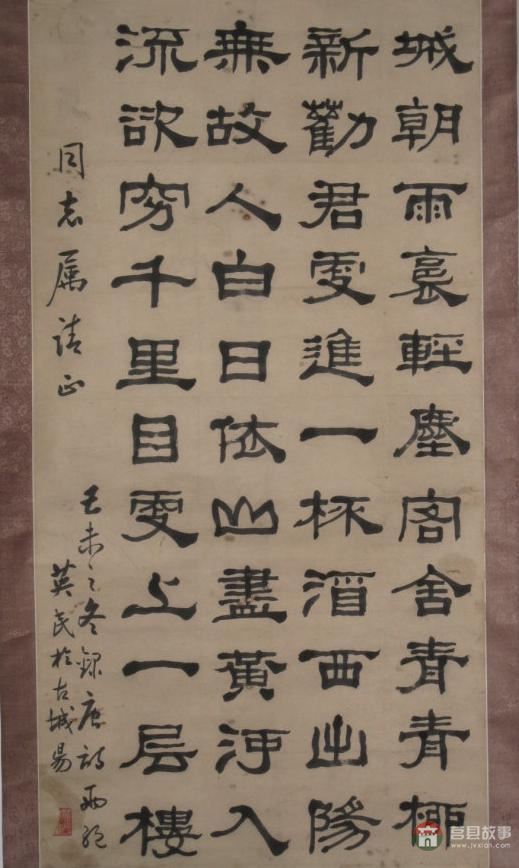 城朝雨裛輕塵客舍青青柳
新勸君更進一杯酒西出陽
無故人白日依山盡黃河入
流欲穷千里目更上一层樓
同志属请正
己未之冬錄唐詩兩絕
英民於古城
莒县故事
www.jvxian.com